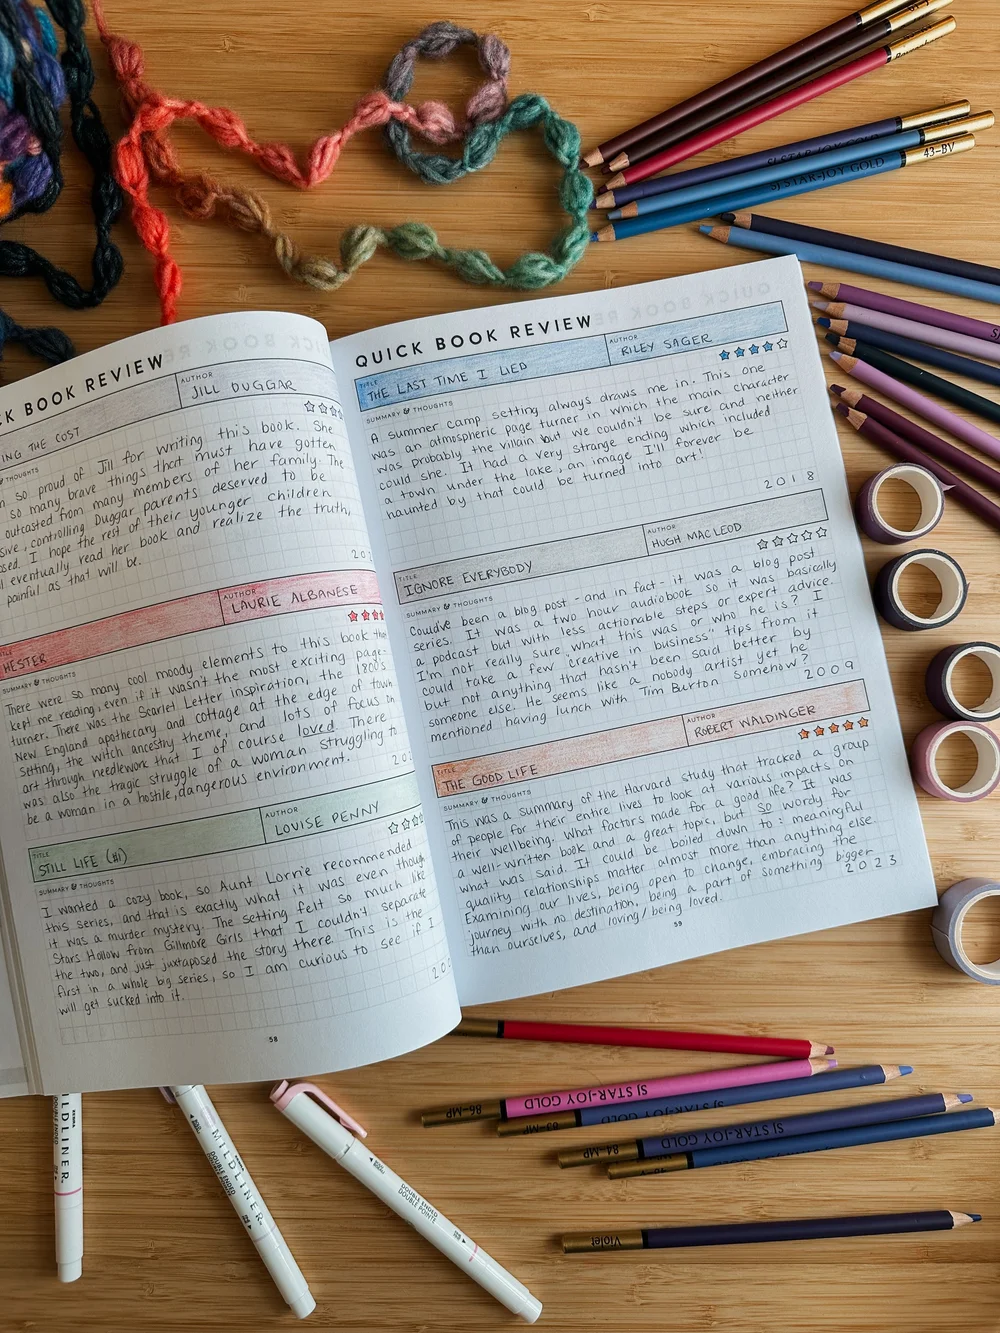 CK BOOK REVIEW
ING THE COST
AUTHOR
JILL DUGGAR
THOUGHTS
so proud of Jill for writing this book. She
so many brave things that must have gotten
outcasted from many members of her family. The
sive, controlling Duggar parents deserved to be
sed. I hope the rest of their younger children
l eventually read her book and realize the truth,
painful as that will be.
202
HESTER
AUTHOR
LAURIE ALBANESE
SUMMARY & THOUGHTS
There were so many cool moody elements to this book that
kept me reading, even if it wasn't the most exciting page-
turner. There was the Scarlet Letter inspiration, the 1800's
New England apothecary and cottage at the edge of town
setting, the witch ancestry theme, and lots of focus on
art through needlework that I of course loved. There
was also the tragic struggle of a woman struggling to
be a woman in a hostile, dangerous environment.
202
TITLE
STILL LIFE (#1)
AUTHOR
LOUISE PENNY
SUMMARY & THOUGHTS
I wanted a cozy book, so Aunt Lorrie recommended
this series, and that is exactly what it was even though
it was a murder mystery. The setting felt so much like
Stars Hollow from Gillmore Girls that I couldn't separate
the two, and just juxtaposed the story there. This is the
first in a whole big series, so I am curious to see if I
will get sucked into it.
20
58
QUICK BOOK REVIEW
TITLE
THE LAST TIME I LIED
AUTHOR
RILEY SAGER
SUMMARY & THOUGHTS
A summer camp setting always draws me in. This one
was an atmospheric page turner in which the main character
was probably the villain but we couldn't be sure and neither
could she. It had a very strange ending which included
a town under the lake, an image I'll forever be
haunted by that could be turned into art!
2018
TITLE
IGNORE EVERYBODY
AUTHOR
HUGH MACLEOD
SUMMARY & THOUGHTS
Could've been a blog post - and in fact - it was a blog post
series. It was a two hour audiobook so it was basically
a podcast but with less actionable steps or expert advice.
I'm not really sure what this was or who he is? I
could take a few "creative in business" tips from it
but not anything that hasn't been said better by
someone else. He seems like a nobody artist yet he
mentioned having lunch with Tim Burton somehow?
2009
TITLE
THE GOOD LIFE
AUTHOR
ROBERT WALDINGER
SUMMARY & THOUGHTS
This was a summary of the Harvard study that tracked a group
of people for their entire lives to look at various impacts on
their wellbeing. What factors made for a good life? It was
a well-written book and a great topic, but so wordy for
what was said. It could be boiled down to: meaningful
quality relationships matter almost more than anything else.
Examining our lives, being open to change, embracing the
journey with no destination, being a part of something bigger
than ourselves, and loving/being loved.
2023
59
SJ STAR-JOY GOLD
SJ STAR-JOY GOLD
43-BV
86-MP
SJ STAR-JOY GOLD
83-MP
SJ STAR-JOY GOLD
84-MP
SJ STAR-JOY GOLD
Violet
ZEBRA
ILDLINER.
DOUBLE ENDED
MILDLINER.
DOUBLE ENDED
DOUBLE POINTE
DOUBLE ENDED
DOUBLE POINTE